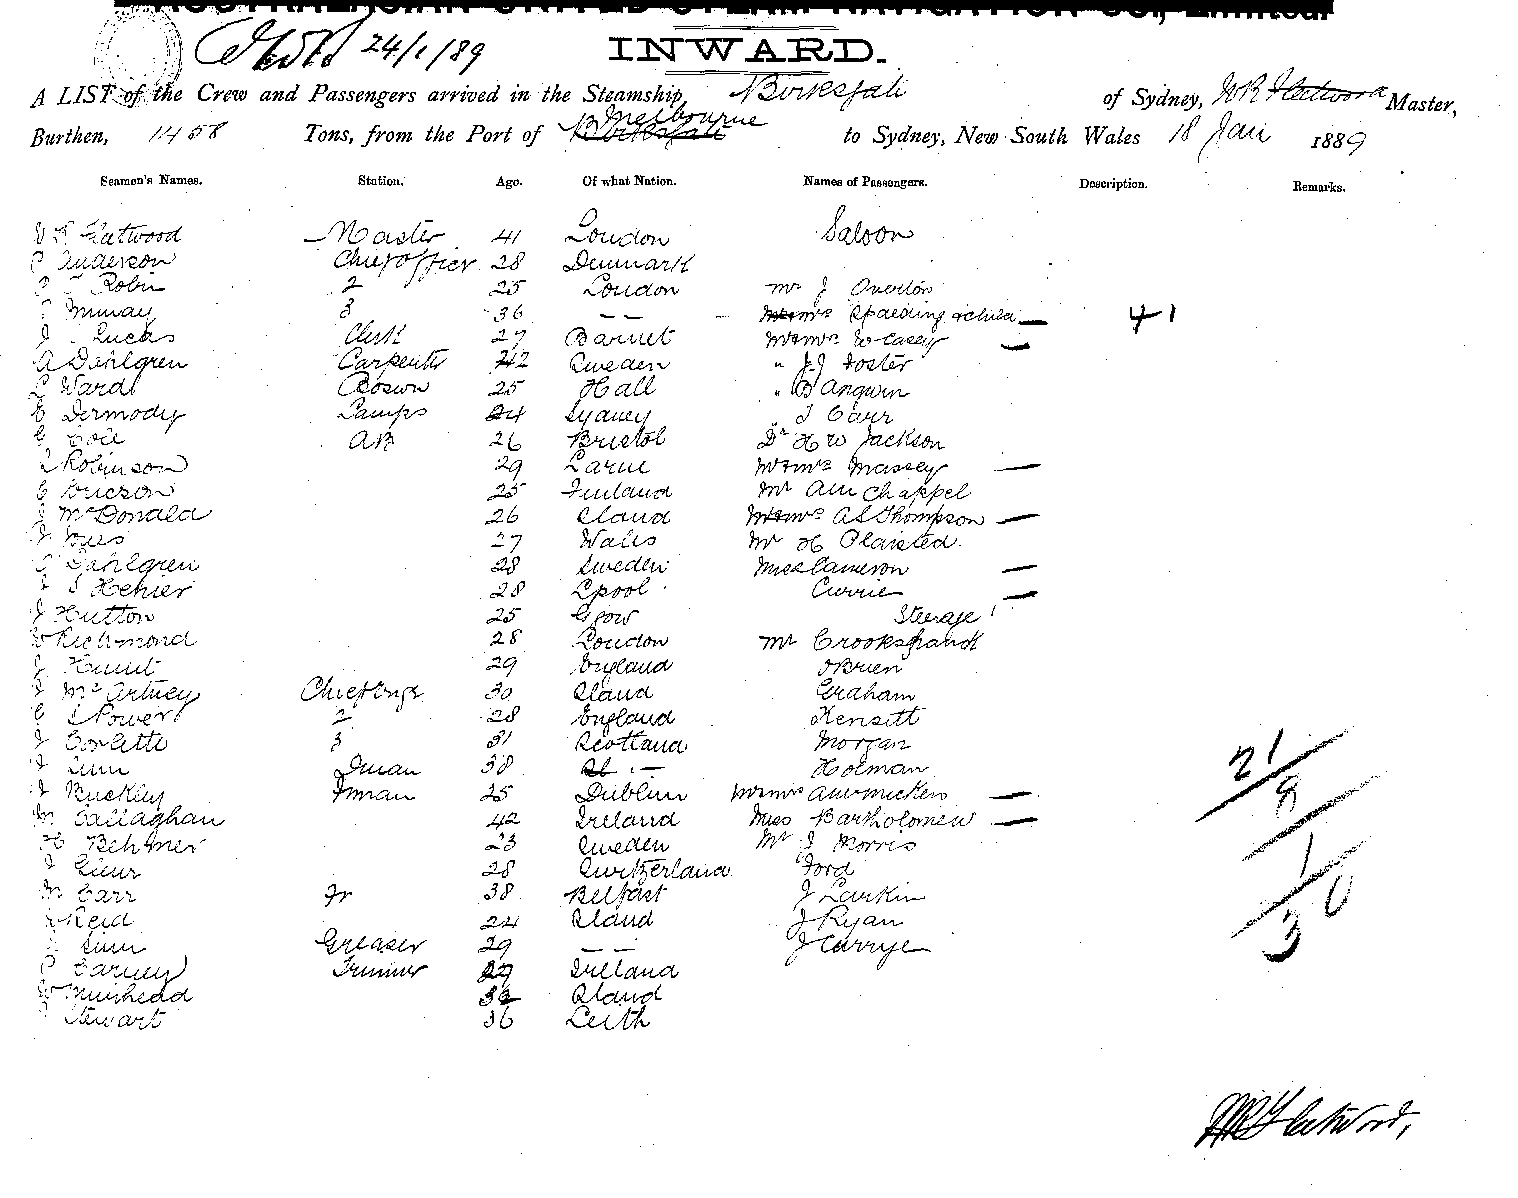 AUSTRALASIAN UNITED STEAM NAVIGATION CO., Limited.
24/1/89 INWARD.
A LIST of the Crew and Passengers arrived in the Steamship, of Sydney, W R Fleetwood Master,
Burthen, 1458 Tons, from the Port of Melbourne to Sydney, New South Wales 18 Jan 1889
Seamen's Names. Station. Age. Of what Nation. Names of Passengers. Description. Remarks.
W R Fleetwood Master 41 London Saloon
Anderson Chief Officer 28 Denmark
Robin 2 25 London Mr J Overton
Murray 3 36 — — Mrs Spalding & child — 41
J Lucas Clerk 27 Barnet Mr & Mrs W Casey —
A Dahlgren Carpenter 42 Sweden " J J Foster
Ward Boswn 25 Hall " B Angwin
E Dermody Lamps 24 Sydney J Carr
Cole AB 26 Bristol Dr H W Jackson
Robinson 29 Larne Mr & Mrs Massey —
Ericson 25 Finland Mr A M Chappel
McDonald 26 Sland Mrs A S Thompson —
J 27 Wales Mr H Plaisted
Dahlgren 28 Sweden Miss Cameron —
Hehier 28 Lpool Currie —
J Hutton 25 Glow Steerage
W Richmond 28 London Mr Crookshank
J Hunt 29 England O'Brien
McArtney Chief Engr 30 Sland Graham
Power 2 28 England Kensitt
J Corlette 3 31 Scotland Morgan
38 Holman
J Buckley Fman 25 Dublin Mr & Mrs —
M Callaghan 42 Ireland Miss Bartholomew —
H Behmer 23 Sweden Mr J Morris
28 Switzerland Ford
M Carr Fr 38 Belfast J Larkin
Reid 24 Sland J Ryan
Greaser 29 — — J
P Carney Trimmer 29 Ireland
W Muirhead 32 Sland
Stewart 36 Leith
21
8
1
30
W R Fleetwood,